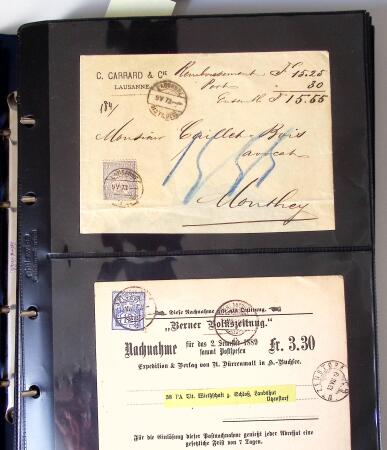 C. CARRARD & Cie Remboursement Fr 15.25
LAUSANNE Port . 30
Ensemble Fr 15.55
9 V 73
Monsieur Caillet-Bois
avocat
Monthey
Diese Nachnahme gilt als Quittung.
„Berner Volkszeitung.“
Nachnahme für das 2. Semester 1889 Fr. 3.30
sammt Postspesen
Expedition & Verlag von U. Dürrenmatt in H.-Buchsee.
38 7A Tit. Wirthschaft z. Schloß, Landshut
Utzenstorf
Für die Einlösung dieser Postnachnahme genießt jeder Adressat eine
gesetzliche Frist von 7 Tagen.